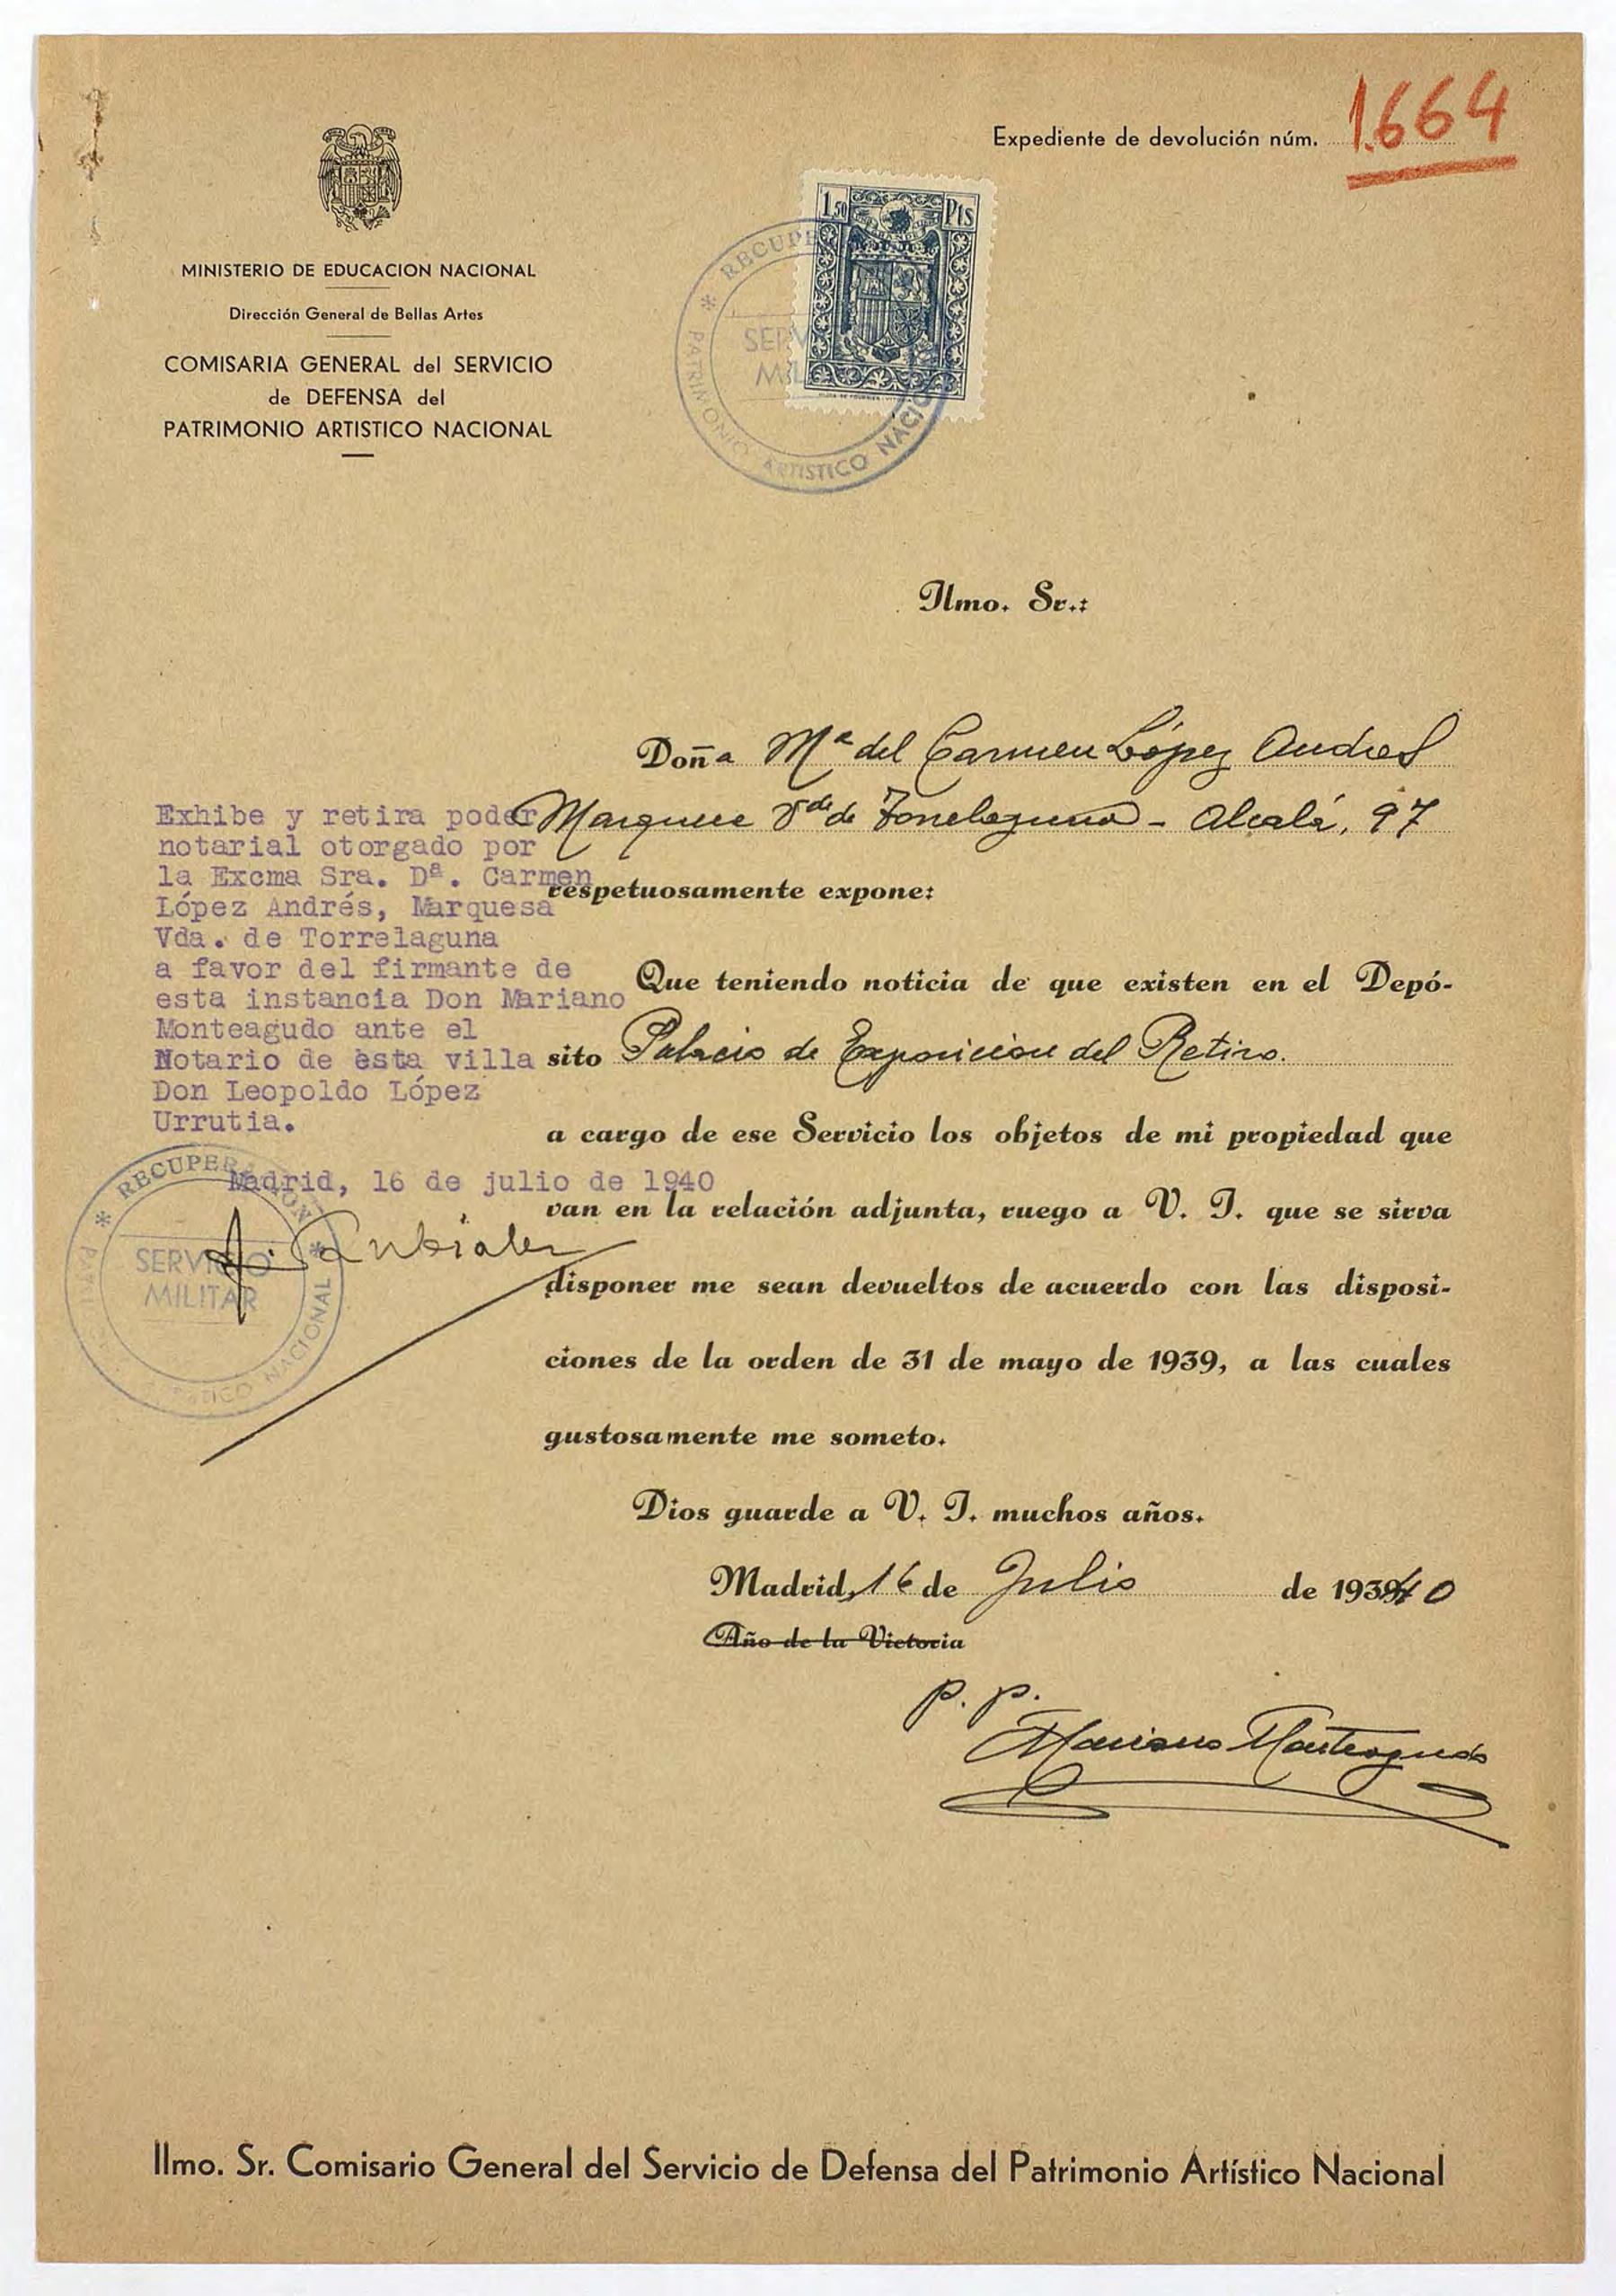 Expediente de devolución núm. 1.664
1,50 Pts
RECUPE
PATRIMONIO ARTISTICO NACIO
SERV
MIL
MINISTERIO DE EDUCACION NACIONAL
Dirección General de Bellas Artes
COMISARIA GENERAL del SERVICIO
de DEFENSA del
PATRIMONIO ARTISTICO NACIONAL
Ilmo. Sr.:
Doña Mª del Carmen López Andres
Marquesa Vda de Torrelaguna - Alcalá, 97
respetuosamente expone:
Exhibe y retira poder
notarial otorgado por
la Excma Sra. Dª. Carmen
López Andrés, Marquesa
Vda. de Torrelaguna
a favor del firmante de
esta instancia Don Mariano
Monteagudo ante el
Notario de esta villa
Don Leopoldo López
Urrutia.
Madrid, 16 de julio de 1940
RECUPERACION
SERVICIO
MILITAR
NACIONAL
Que teniendo noticia de que existen en el Depó-
sito Palacio de Exposicion del Retiro.
a cargo de ese Servicio los objetos de mi propiedad que
van en la relación adjunta, ruego a V. I. que se sirva
disponer me sean devueltos de acuerdo con las disposi-
ciones de la orden de 31 de mayo de 1939, a las cuales
gustosamente me someto.
Dios guarde a V. I. muchos años.
Madrid, 16 de Julio de 193940
Año de la Victoria
p. p.
Mariano Monteagudo
Ilmo. Sr. Comisario General del Servicio de Defensa del Patrimonio Artístico Nacional